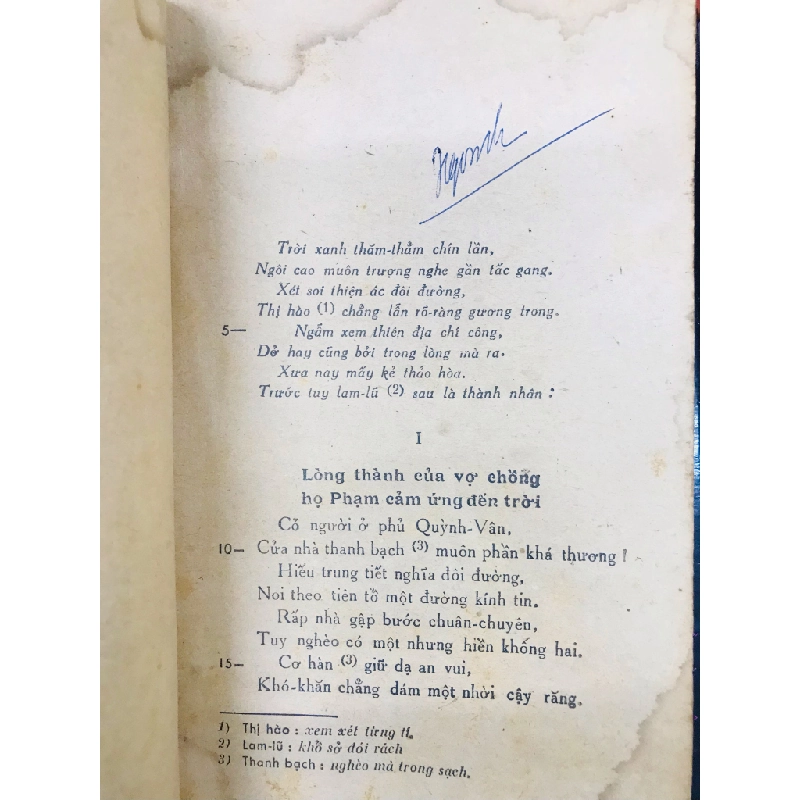 Trời xanh thăm-thẳm chín lần,
Ngôi cao muôn trượng nghe gần tấc gang.
Xét soi thiện ác đôi đường,
Thị hào (1) chẳng lẫn rõ-ràng gương trong.
5— Ngẫm xem thiên địa chí công,
Dở hay cũng bởi trong lòng mà ra.
Xưa nay mấy kẻ thảo hòa.
Trước tuy lam-lũ (2) sau là thành nhân :
I
Lòng thành của vợ chồng
họ Phạm cảm ứng đến trời
Có người ở phủ Quỳnh-Vân,
10— Cửa nhà thanh bạch (3) muôn phần khá thương !
Hiếu trung tiết nghĩa đôi đường,
Noi theo tiên tổ một đường kính tin.
Rấp nhà gập bước chuân-chuyên,
Tuy nghèo có một nhưng hiền không hai.
15— Cơ hàn (3) giữ dạ an vui,
Khó-khăn chẳng dám một nhời cậy rằng.
1) Thị hào : xem xét từng tí.
2) Lam-lũ : khổ sở đói rách
3) Thanh bạch : nghèo mà trong sạch.